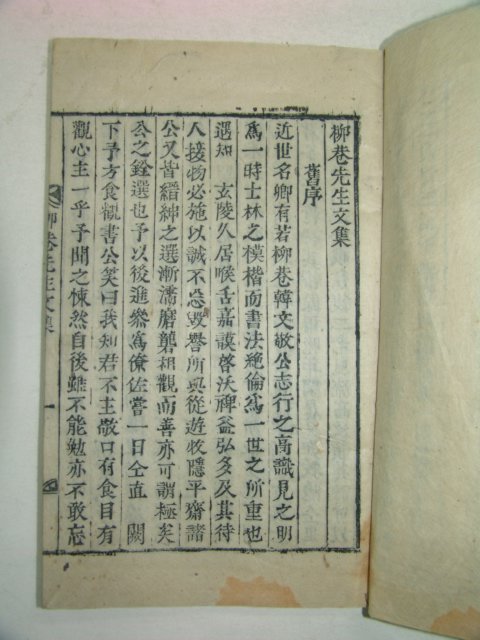 柳巷先生文集
舊序
近世名卿有若柳巷韓文敬公志行之高識見之明
爲一時士林之模楷而書法絶倫爲一世之所重也
遇知　玄陵久居喉舌嘉謨啓沃裨益弘多及其待
人接物必施以誠不忌毁譽所與從遊牧隱平齋諸
公又皆縉紳之選漸濡磨礱相觀而善亦可謂極矣
公之銓選也予以後進參爲僚佐嘗一日仝直　闕
下予方食輒書公笑曰我知君不主敬口有食目有
觀心主一乎予聞之悚然自後雖不能勉亦不敢忘
柳巷先生文集
一